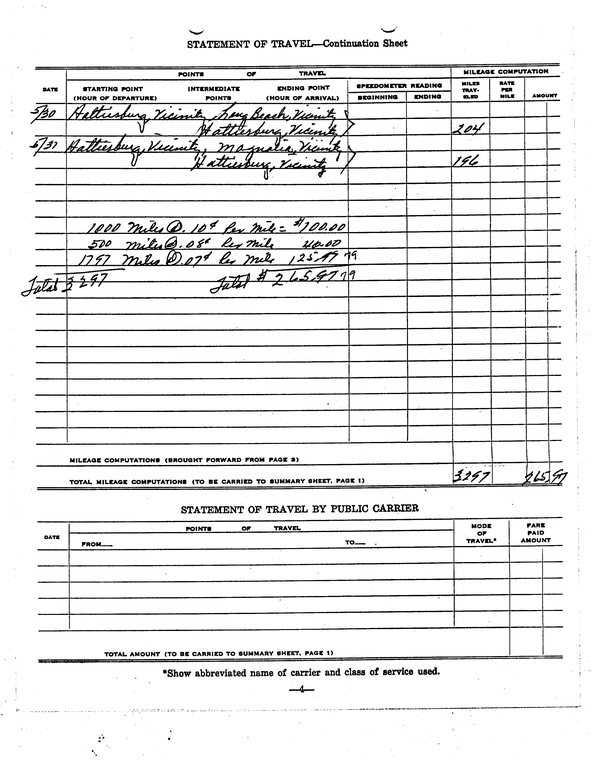 STATEMENT OF TRAVEL—Continuation Sheet
POINTS OF TRAVEL MILEAGE COMPUTATION
DATE STARTING POINT (HOUR OF DEPARTURE) INTERMEDIATE POINTS ENDING POINT (HOUR OF ARRIVAL) SPEEDOMETER READING BEGINNING ENDING MILES TRAV-ELED RATE PER MILE AMOUNT
5/30 Hattiesburg, Vicinity, Long Beach, Vicinity
Hattiesburg, Vicinity 204
5/31 Hattiesburg, Vicinity, Magnolia, Vicinity
Hattiesburg, Vicinity 196
1000 Miles @ .10¢ Per Mile = $100.00
500 Miles @ .08¢ Per Mile 40.00
1797 Miles @ .07¢ Per Mile 125.79
Total 3297 Total $265.79
MILEAGE COMPUTATIONS (BROUGHT FORWARD FROM PAGE 3)
TOTAL MILEAGE COMPUTATIONS (TO BE CARRIED TO SUMMARY SHEET, PAGE 1) 3297
STATEMENT OF TRAVEL BY PUBLIC CARRIER
DATE POINTS OF TRAVEL MODE OF TRAVEL* FARE PAID AMOUNT
FROM— TO—
TOTAL AMOUNT (TO BE CARRIED TO SUMMARY SHEET, PAGE 1)
*Show abbreviated name of carrier and class of service used.
—4—